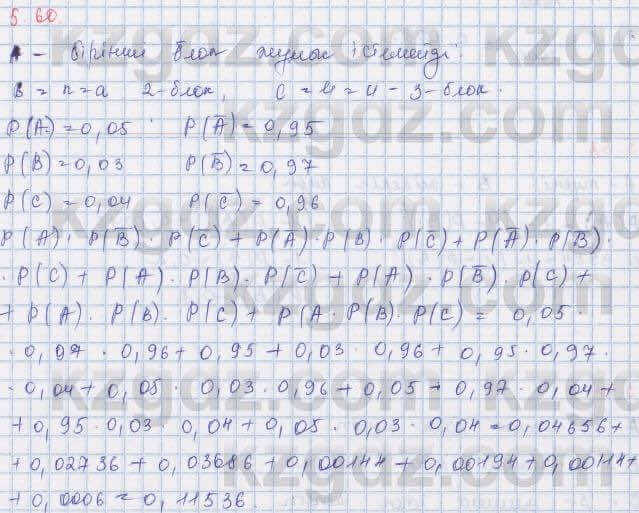 5.60
A – бірінші блок жұмыс істемейді.
B = n = a 2-блок, C = u = u – 3-блок.
P(A) = 0,05 P(A̅) = 0,95
P(B) = 0,03 P(B̅) = 0,97
P(C) = 0,04 P(C̅) = 0,96
P(A) · P(B̅) · P(C̅) + P(A̅) · P(B) · P(C̅) + P(A̅) · P(B̅) ·
· P(C) + P(A) · P(B) · P(C̅) + P(A) · P(B̅) · P(C) +
+ P(A) · P(B) · P(C) + P(A · P(B) · P(C) = 0,05 ·
· 0,97 · 0,96 + 0,95 + 0,03 · 0,96 + 0,95 · 0,97 ·
· 0,04 + 0,05 · 0,03 · 0,96 + 0,05 + 0,97 · 0,04 +
+ 0,95 · 0,03 · 0,04 + 0,05 · 0,03 · 0,04 = 0,04656 +
+ 0,02736 + 0,03686 + 0,00144 + 0,00194 + 0,00114 +
+ 0,0006 = 0,11536.
kzgdz.com